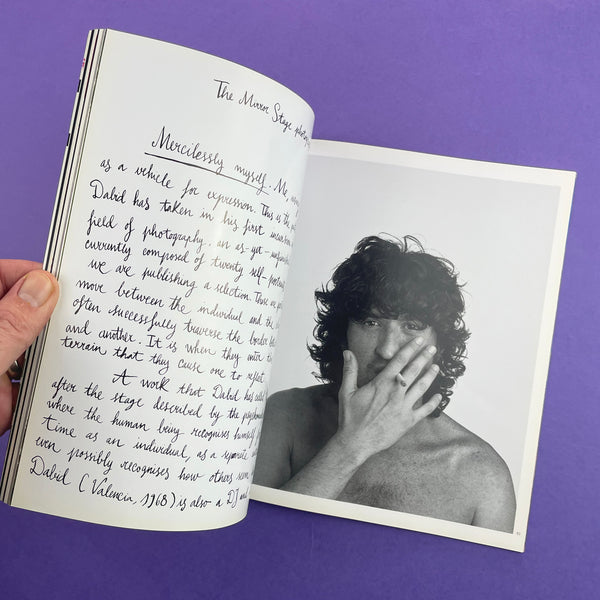 The Mirror Stage
Mercilessly myself. Me,
as a vehicle for expression. This is the
Dabid has taken in his first
field of photography, an as-yet-
currently composed of twenty self-
we are publishing a selection. These
move between the individual and the
often successfully traverse the border
and another. It is when they enter
terrain that they cause one to reflect
A work that Dabid has
after the stage described by the
where the human being recognises himself
time as an individual, as a separate
even possibly recognises how others
Dabid (Valencia, 1968) is also a DJ and